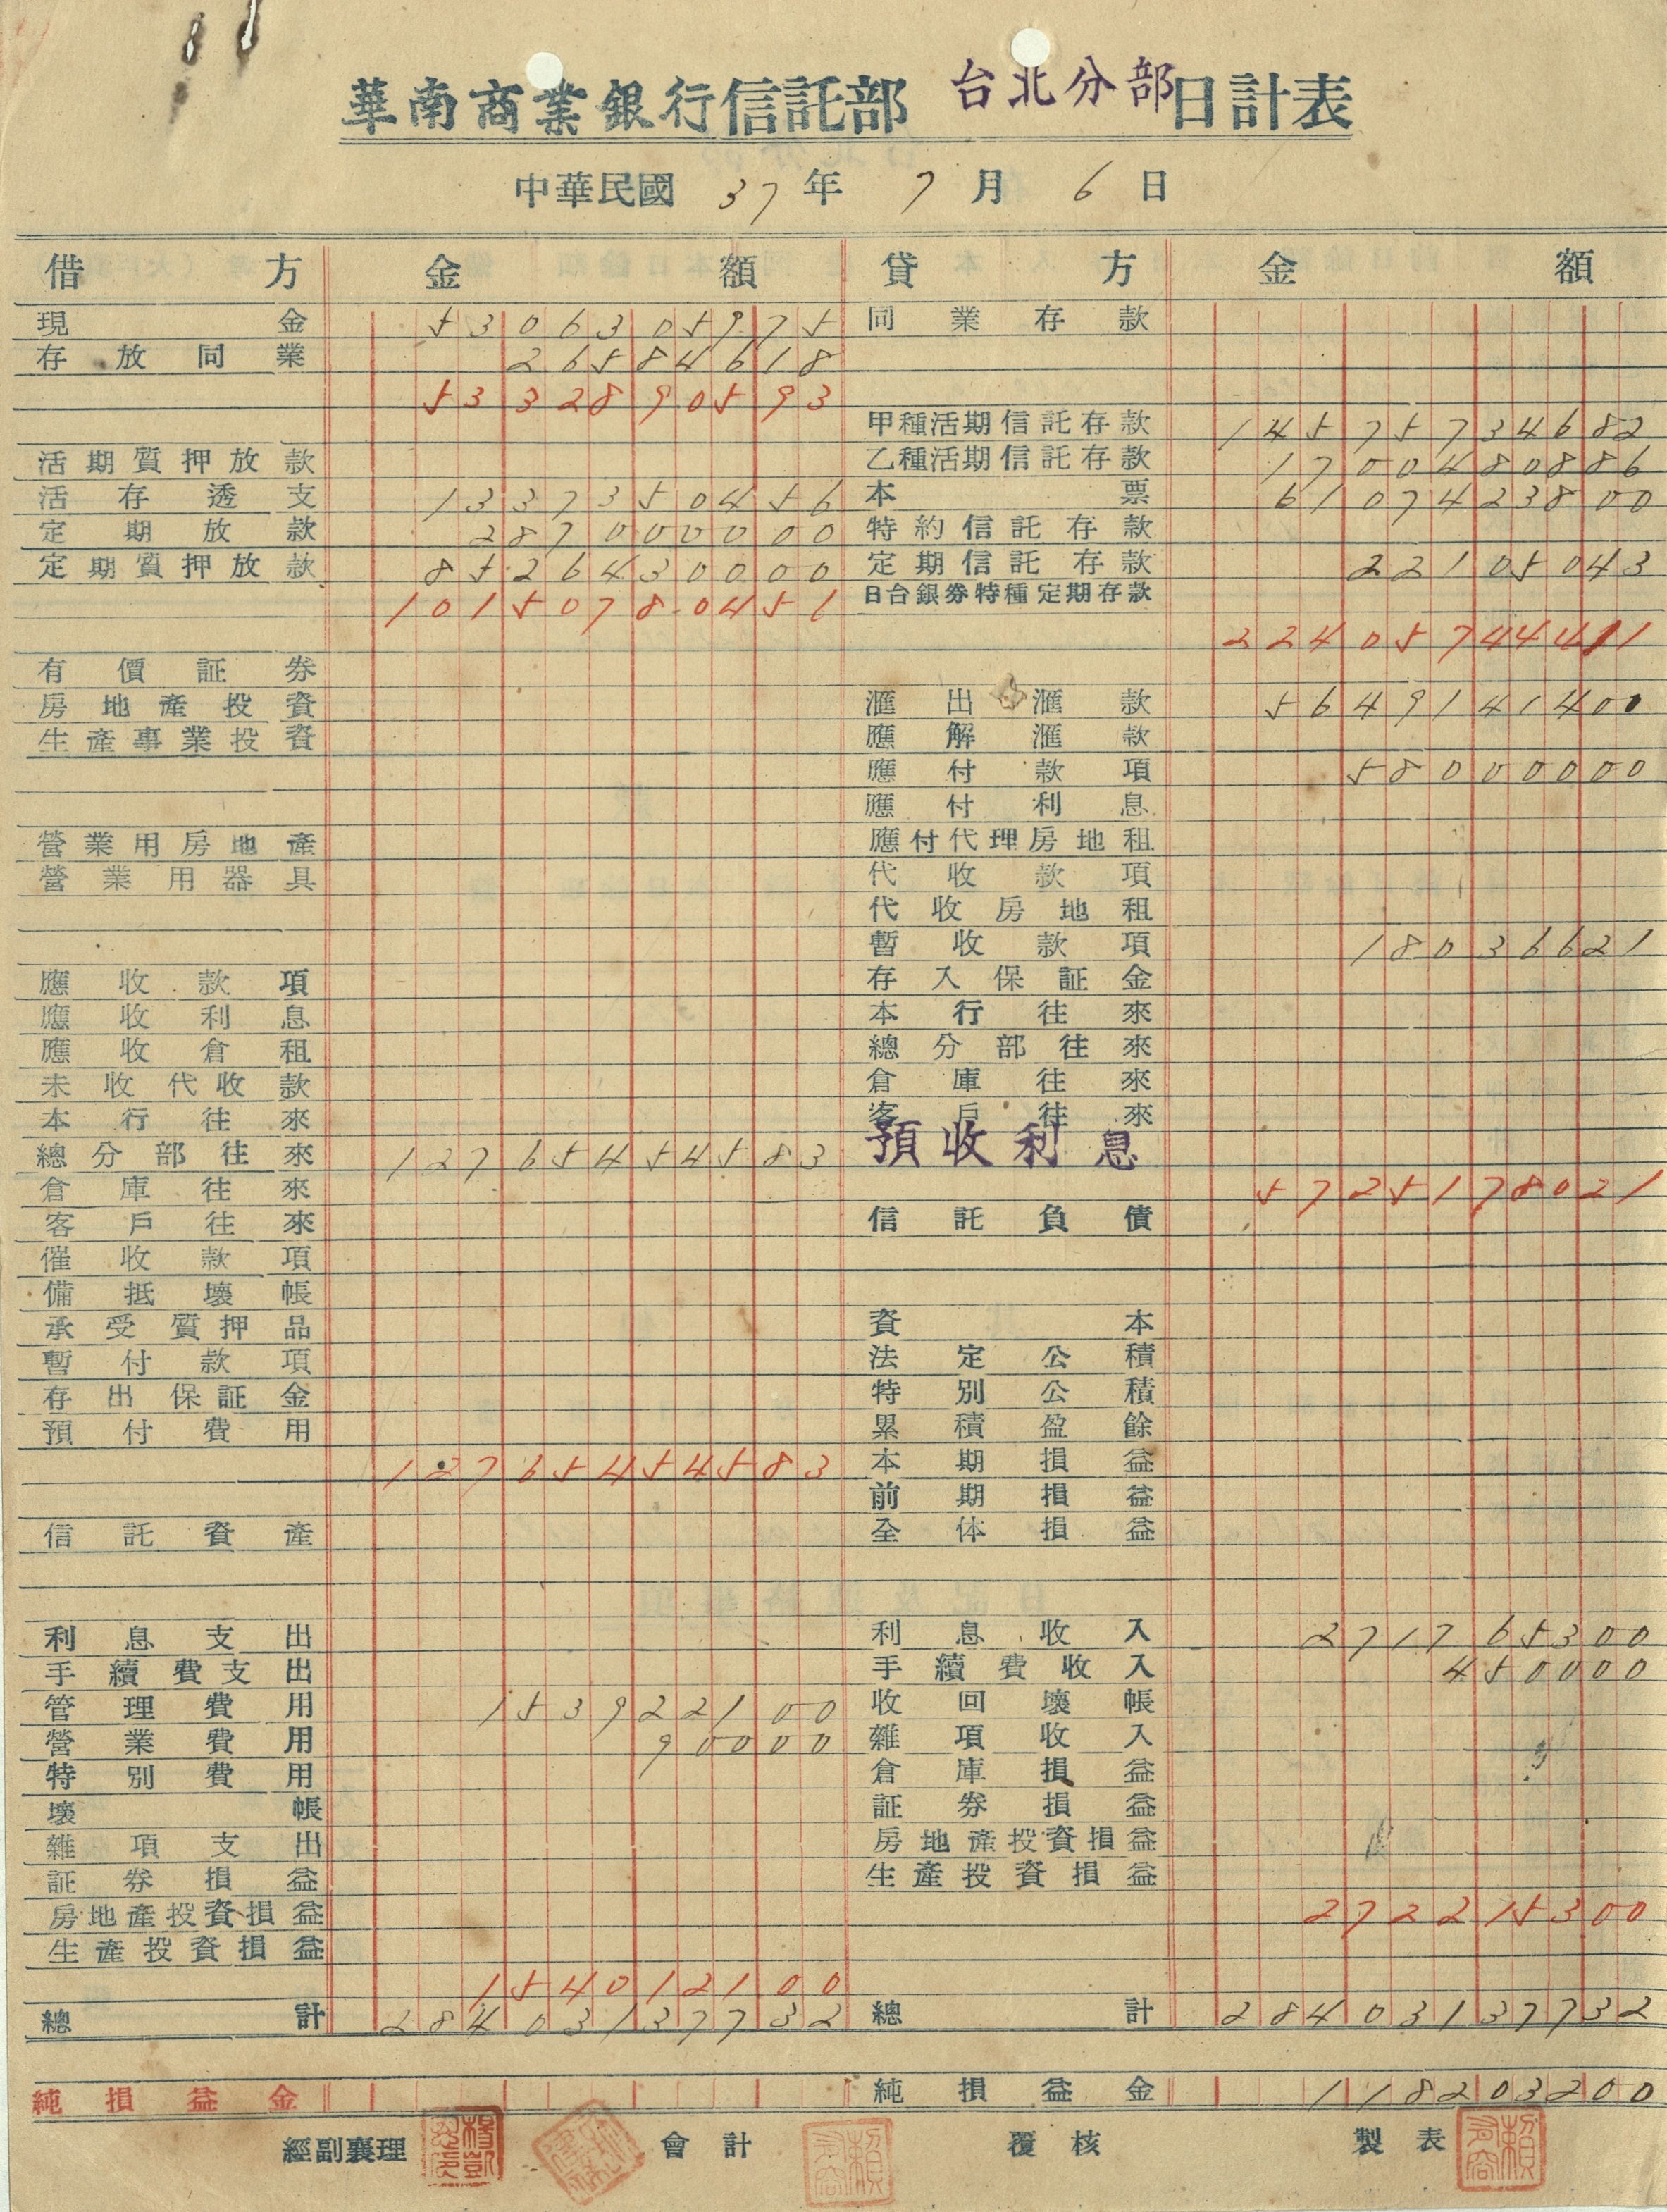 華南商業銀行信託部 台北分部日計表
中華民國 37 年 7 月 6 日
借方 金額 貸方 金額
現金 5306305975 同業存款
存放同業 26584618
5332890593
甲種活期信託存款 14575734682
活期質押放款 乙種活期信託存款 1700480886
活存透支 1337350456 本票 6107423800
定期放款 287000000 特約信託存款
定期質押放款 8526430000 定期信託存款 22105043
10150780456 日台銀券特種定期存款
22405744411
有價証券
房地產投資 滙出滙款 5649141400
生產事業投資 應解滙款
應付款項 58000000
應付利息
營業用房地產 應付代理房地租
營業用器具 代收款項
代收房地租
暫收款項 18036621
應收款項 存入保証金
應收利息 本行往來
應收倉租 總分部往來
未收代收款 倉庫往來
本行往來 客戶往來
總分部往來 12765454583 預收利息
倉庫往來 5725178021
客戶往來 信託負債
催收款項
備抵壞帳
承受質押品 資本
暫付款項 法定公積
存出保証金 特別公積
預付費用 累積盈餘
12765454583 本期損益
前期損益
信託資產 全体損益
利息支出 利息收入 271765300
手續費支出 手續費收入 450000
管理費用 153922100 收回壞帳
營業費用 90000 雜項收入
特別費用 倉庫損益
壞帳 証券損益
雜項支出 房地產投資損益
証券損益 生產投資損益
房地產投資損益 272215300
生產投資損益
154012100
總計 28403137732 總計 28403137732
純損益金 純損益金 118203200
經副襄理 會計 覆核 製表